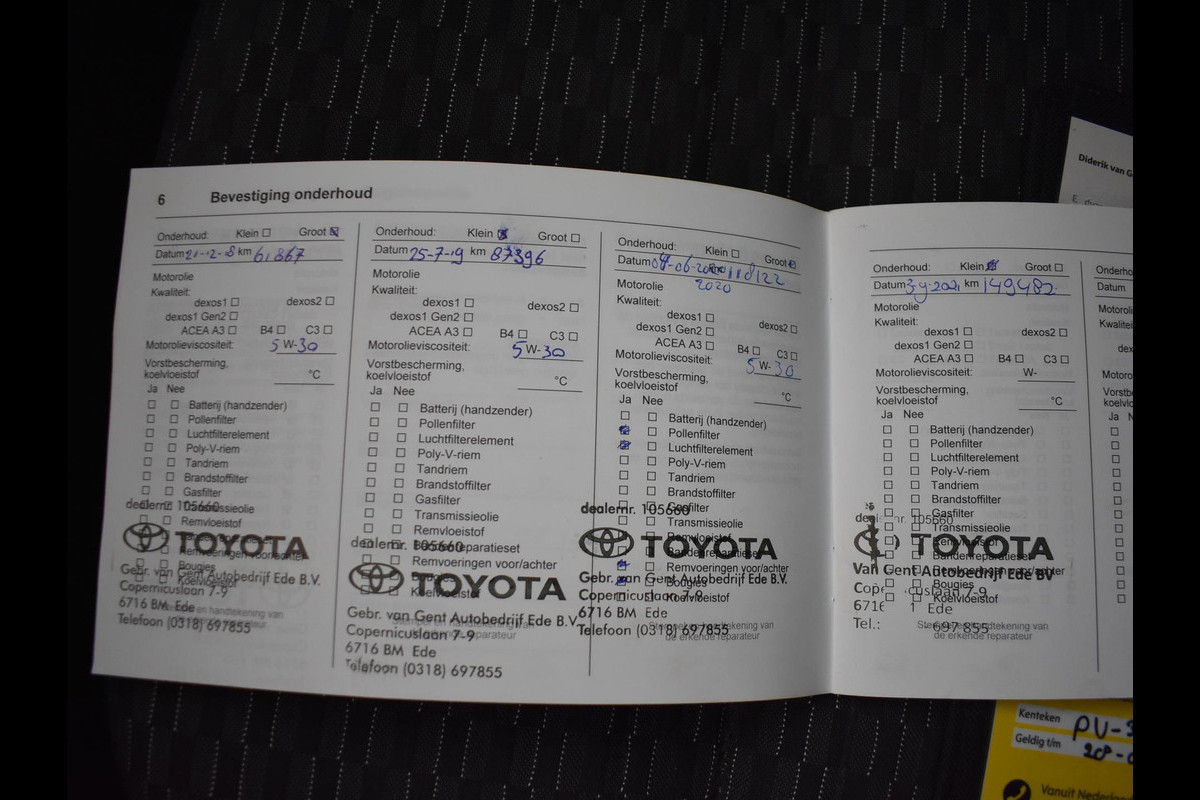 6 Bevestiging onderhoud
Onderhoud: Klein ☐ Groot ☒
Datum 21-12-18 km 61867
Motorolie
Kwaliteit:
dexos1 ☐ dexos2 ☐
dexos1 Gen2 ☐
ACEA A3 ☐ B4 ☐ C3 ☐
Motorolieviscositeit: 5 W-30
Vorstbescherming,
koelvloeistof °C
Ja Nee
☐ ☐ Batterij (handzender)
☐ ☐ Pollenfilter
☐ ☐ Luchtfilterelement
☐ ☐ Poly-V-riem
☐ ☐ Tandriem
☐ ☐ Brandstoffilter
☐ ☐ Gasfilter
Transmissieolie
Remvloeistof
Remvoeringen voor/achter
Bougies
Koelvloeistof
dealernr. 105660
TOYOTA
Gebr. van Gent Autobedrijf Ede B.V.
Copernicuslaan 7-9
6716 BM Ede
Telefoon (0318) 697855
Onderhoud: Klein ☒ Groot ☐
Datum 25-7-19 km 87396
Motorolie
Kwaliteit:
dexos1 ☐ dexos2 ☐
dexos1 Gen2 ☐
ACEA A3 ☐ B4 ☐ C3 ☐
Motorolieviscositeit: 5 W-30
Vorstbescherming,
koelvloeistof °C
Ja Nee
☐ ☐ Batterij (handzender)
☐ ☐ Pollenfilter
☐ ☐ Luchtfilterelement
☐ ☐ Poly-V-riem
☐ ☐ Tandriem
☐ ☐ Brandstoffilter
☐ ☐ Gasfilter
☐ ☐ Transmissieolie
☐ ☐ Remvloeistof
Bandenreparatieset
Remvoeringen voor/achter
Bougies
Koelvloeistof
dealernr. 105660
TOYOTA
Gebr. van Gent Autobedrijf Ede B.V.
Copernicuslaan 7-9
6716 BM Ede
Telefoon (0318) 697855
Onderhoud: Klein ☐ Groot ☒
Datum km 118122
2020
Motorolie
Kwaliteit:
dexos1 ☐ dexos2 ☐
dexos1 Gen2 ☐
ACEA A3 ☐ B4 ☐ C3 ☐
Motorolieviscositeit: 5 W-30
Vorstbescherming,
koelvloeistof °C
Ja Nee
☐ ☐ Batterij (handzender)
☒ ☐ Pollenfilter
☒ ☐ Luchtfilterelement
☐ ☐ Poly-V-riem
☐ ☐ Tandriem
☐ ☐ Brandstoffilter
Gasfilter
Transmissieolie
Remvloeistof
Bandenreparatieset
☒ ☐ Remvoeringen voor/achter
☒ ☐ Bougies
Koelvloeistof
dealernr. 105660
TOYOTA
Gebr. van Gent Autobedrijf Ede B.V.
Copernicuslaan 7-9
6716 BM Ede
Telefoon (0318) 697855
Stempel en handtekening van
de erkende reparateur
Onderhoud: Klein ☒ Groot ☐
Datum km 149482
Motorolie
Kwaliteit:
dexos1 ☐ dexos2 ☐
dexos1 Gen2 ☐
ACEA A3 ☐ B4 ☐ C3 ☐
Motorolieviscositeit: W-
Vorstbescherming,
koelvloeistof °C
Ja Nee
☐ ☐ Batterij (handzender)
☐ ☐ Pollenfilter
☐ ☐ Luchtfilterelement
☐ ☐ Poly-V-riem
☐ ☐ Tandriem
☐ ☐ Brandstoffilter
Gasfilter
Transmissieolie
Remvloeistof
Bandenreparatieset
Remvoeringen voor/achter
Bougies
Koelvloeistof
105660
TOYOTA
Van Gent Autobedrijf Ede BV
7-9
Ede
Tel.: 697 855
Stempel en handtekening van
de erkende reparateur
Datum
Ja
Diderik van G
Kenteken PU-
Geldig t/m 28-
Vanuit Nederland